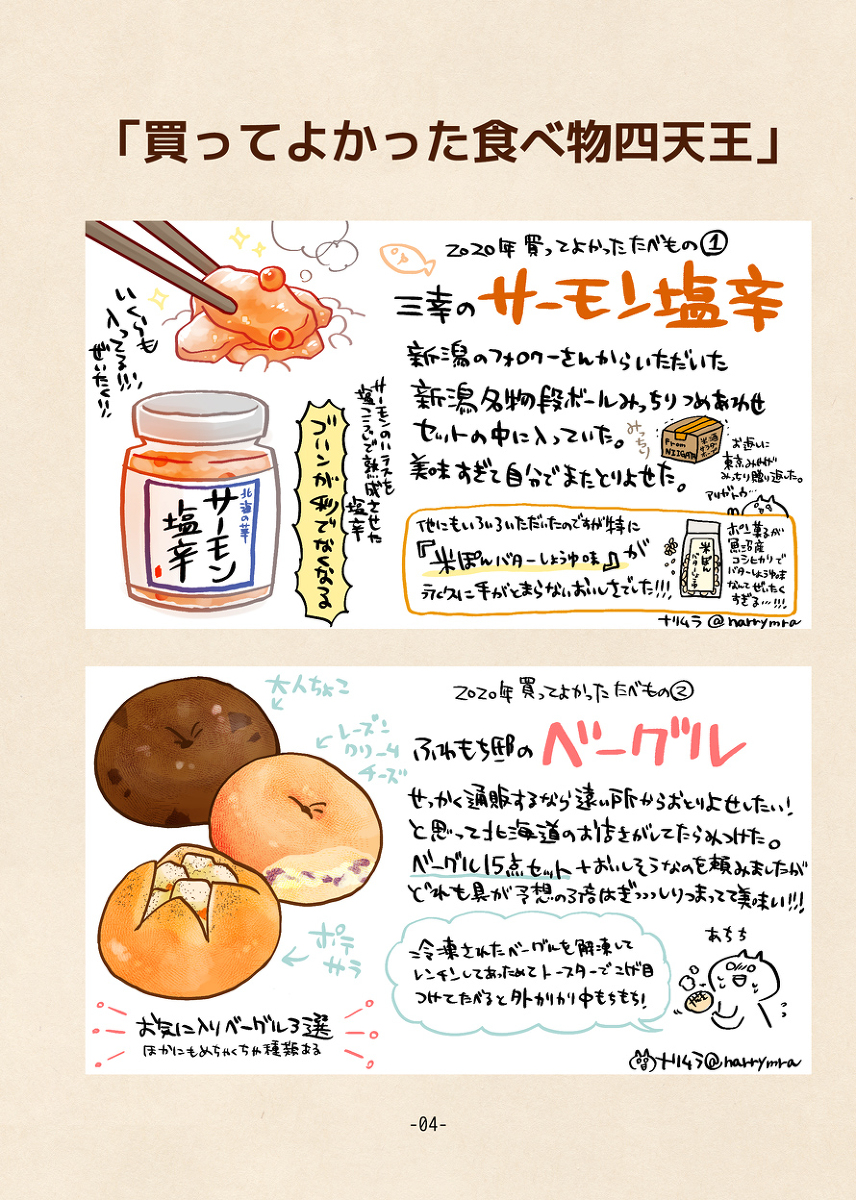 「買ってよかった食べ物四天王」
2020年買ってよかったたべもの①
三幸のサーモン塩辛
新潟のフォロワーさんからいただいた
新潟名物の段ボールみっちりつめあわせ
セットの中に入っていた。
美味すぎて自分でまたとりよせた。
みっちり
From
NIIGATA
お返しに
東京みやげ
みっちり贈り返した。
アリガトウ…
いくらも
入ってる!!!
ぜいたく!!
サーモンのハラスを
糀こうじで熟成させた
塩辛
ゴハンが秒でなくなる
北海の幸
サーモン
塩辛
他にもいろいろいただいたのですが特に
『米ぽんバターしょうゆ味』が
永久に手がとまらないおいしさでした!!!
米ぽん
バターしょうゆ
ポン菓子が
魚沼産
コシヒカリで
バターしょうゆ味
なんてぜいたく
すぎる…!!!
ナリムラ @narrymra
2020年買ってよかったたべもの②
ふわもち邸のベーグル
大人ちょこ
レーズン
クリーム
チーズ
ポテ
サラ
せっかく通販するなら遠い所からおとりよせしたい!
と思って北海道のお店さがしてたらみつけた。
ベーグル15点セット+おいしそうなのを頼みましたが
どれも具が予想の3倍はぎっっっしりつまってて美味い!!!
冷凍されたベーグルを解凍して
レンチンしてあっためてトースターでこげ目
つけてたべると外かりかり中もちもち!
あちち
お気に入りベーグル3選
ほかにもめちゃくちゃ種類ある
ナリムラ@narrymra
-04-